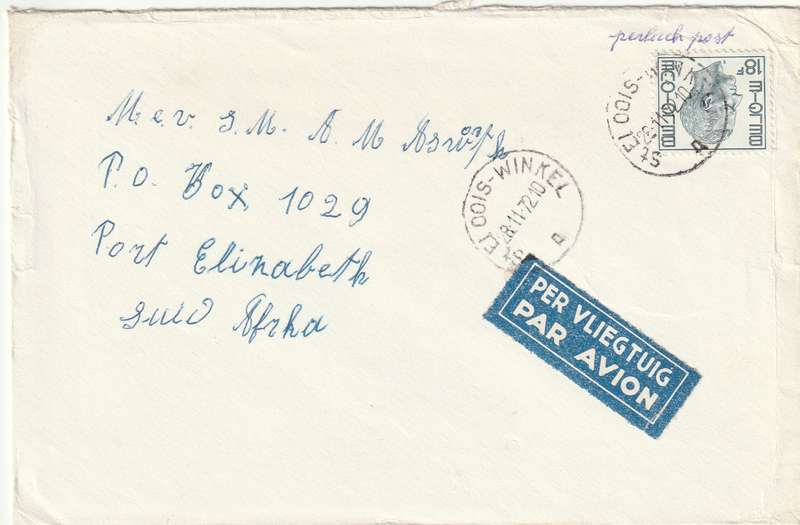 perlucht post
18F
BELGIE
BELGIQUE
St ELOOIS-WINKEL
28-11-72 10
M.e.v. J.M. A.M
P.O. Box 1029
Port Elizabeth
Suid Afrka
St ELOOIS-WINKEL
28-11-72 10
PER VLIEGTUIG
PAR AVION